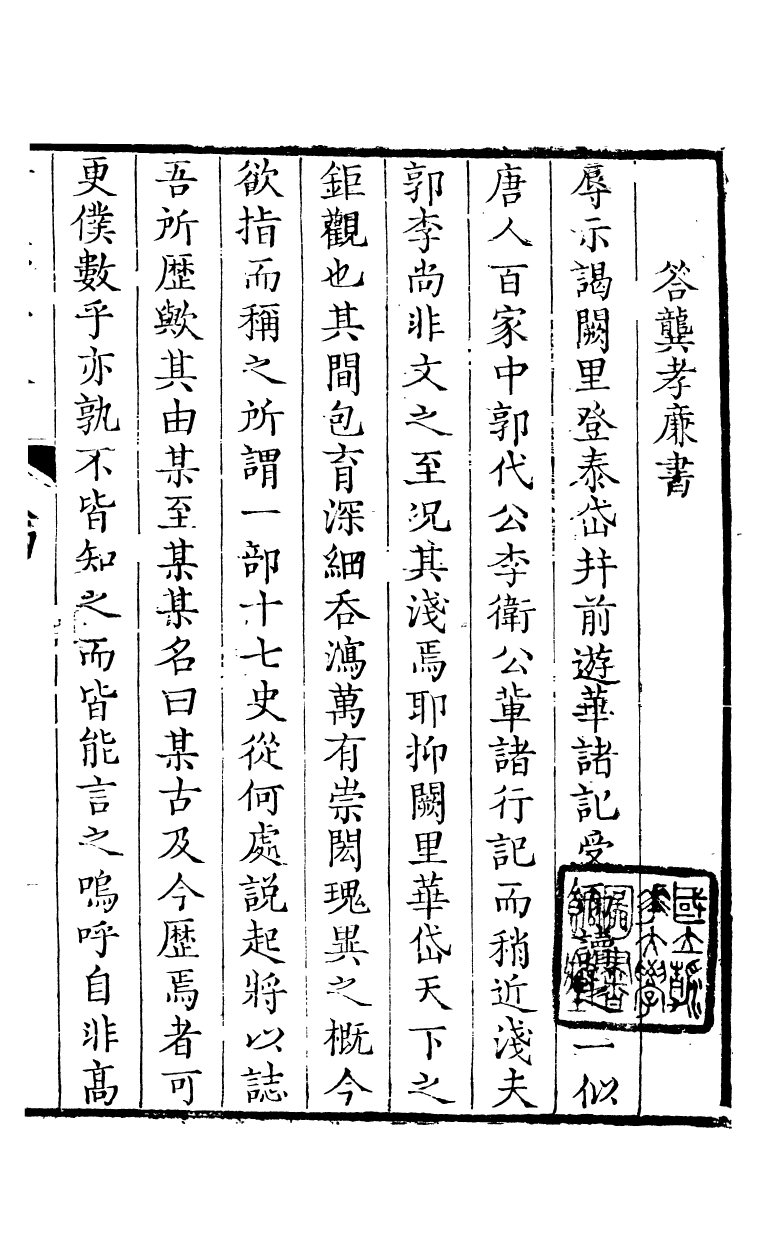 答龔孝廉書
辱示謁闕里登泰岱并前遊華諸記受讀一似
唐人百家中郭代公李衛公輩諸行記而稍近淺夫
郭李尚非文之至况其淺焉耶抑闕里華岱天下之
鉅觀也其間包育深細吞瀉萬有崇閎瑰異之概今
欲指而稱之所謂一部十七史從何處説起將以誌
吾所歷歟其由某至某某名曰某古及今歷焉者可
更僕數乎亦孰不皆知之而皆能言之嗚呼自非高